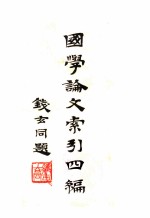 國學論文索引四編
錢玄同題